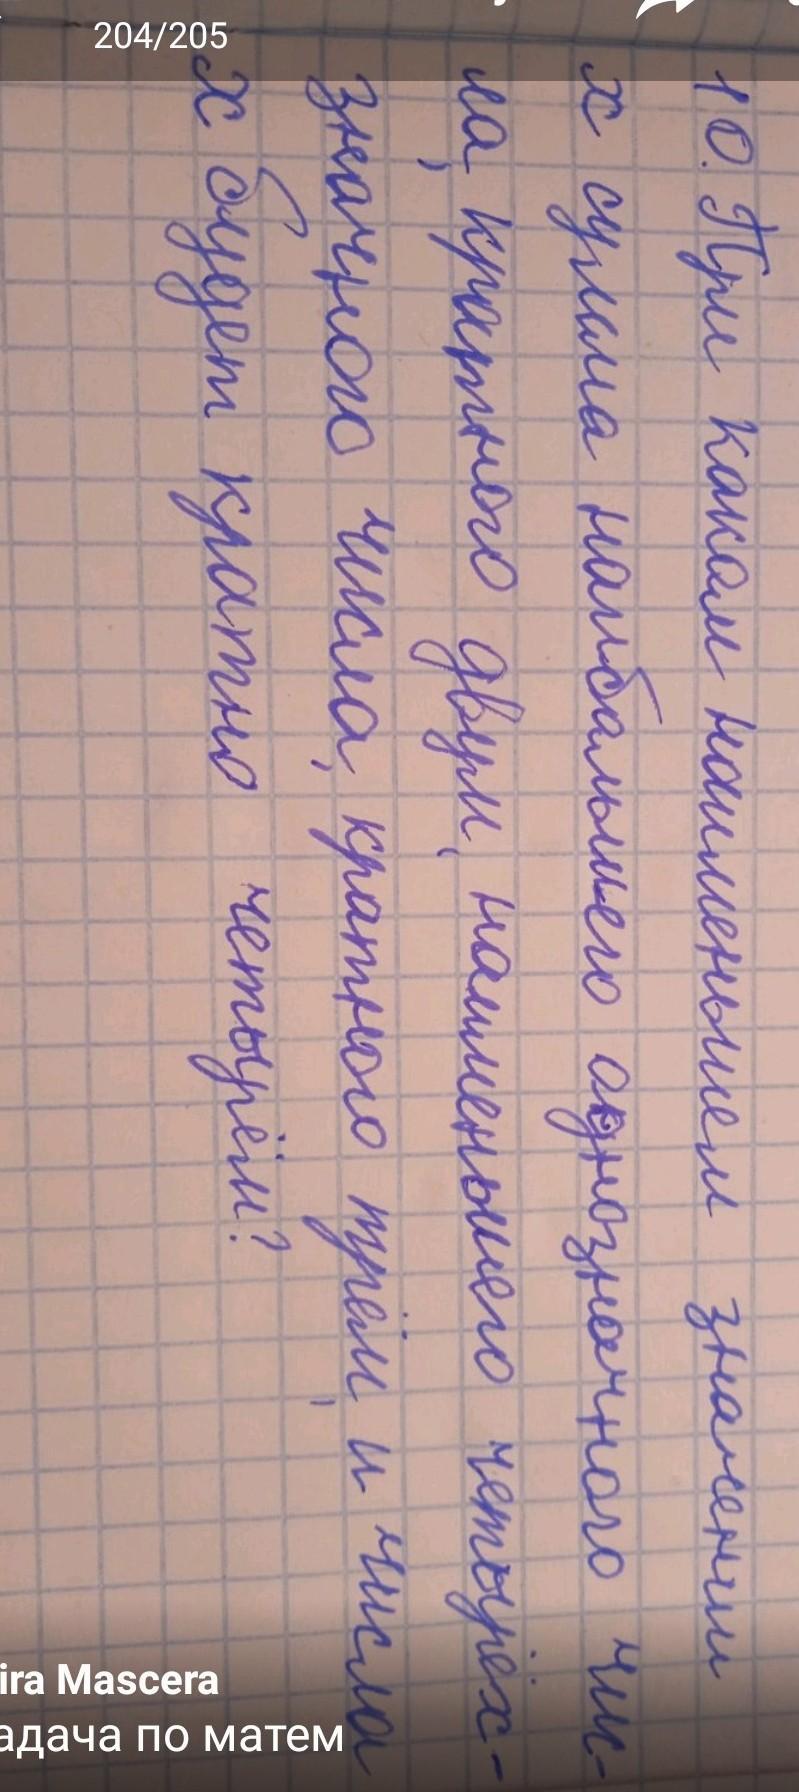 204/205
10. При каком наименьшем значении
х сумма наибольшего однозначного чис-
ла, кратного двум, наименьшего четырёх-
значного числа, кратного трём, и числа
х будет кратно четырём?
ira Mascera
адача по матем